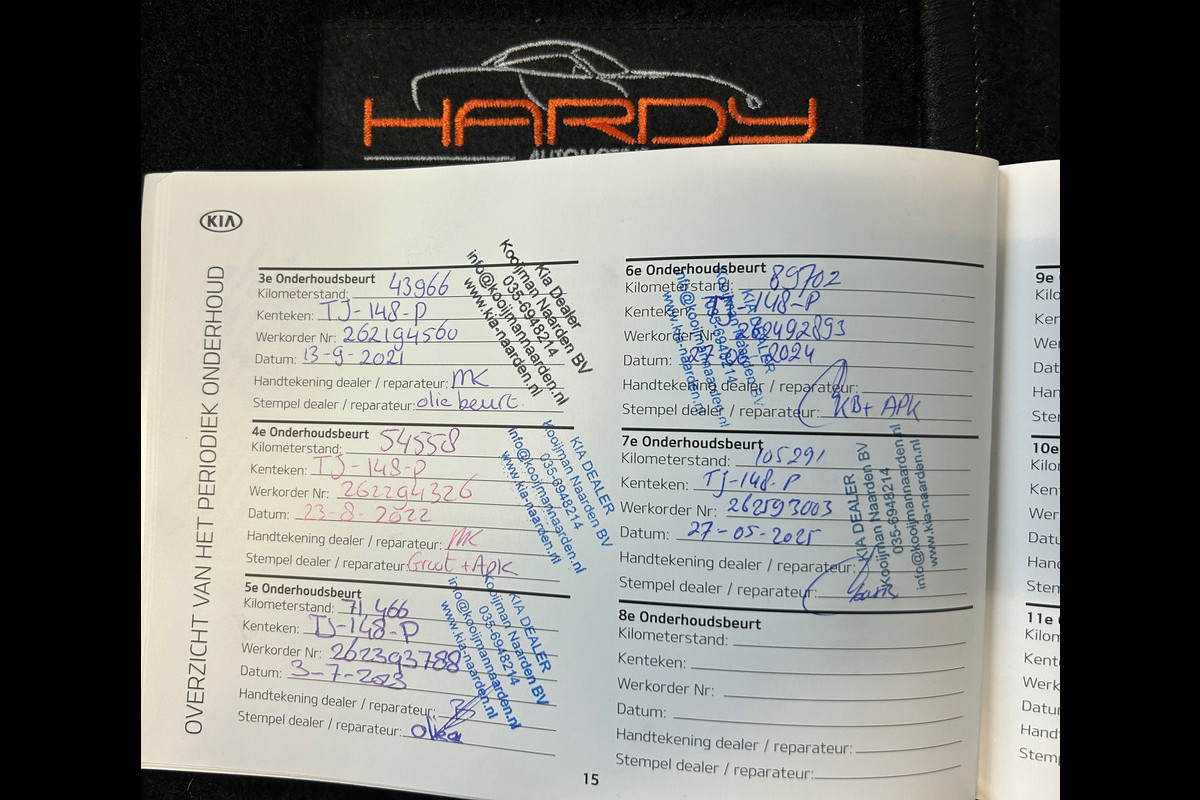 HARDY
KIA
OVERZICHT VAN HET PERIODIEK ONDERHOUD
3e Onderhoudsbeurt
Kilometerstand: 43966
Kenteken: TJ-148-P
Werkorder Nr: 262194560
Datum: 13-9-2021
Handtekening dealer / reparateur: MK
Stempel dealer / reparateur: olie beurt
Kia Dealer
Kooijman Naarden BV
035-6948214
info@kooijmannaarden.nl
www.kia-naarden.nl
4e Onderhoudsbeurt
Kilometerstand: 54558
Kenteken: TJ-148-P
Werkorder Nr: 262294326
Datum: 23-8-2022
Handtekening dealer / reparateur: MK
Stempel dealer / reparateur: Groot + Apk
KIA DEALER
Kooijman Naarden BV
035-6948214
info@kooijmannaarden.nl
www.kia-naarden.nl
5e Onderhoudsbeurt
Kilometerstand: 71466
Kenteken: TJ-148-P
Werkorder Nr: 262393788
Datum: 3-7-2023
Handtekening dealer / reparateur:
Stempel dealer / reparateur:
KIA DEALER
Kooijman Naarden BV
035-6948214
info@kooijmannaarden.nl
www.kia-naarden.nl
6e Onderhoudsbeurt
Kilometerstand: 89702
Kenteken: 148-P
Werkorder Nr: 262492893
Datum: 2024
Handtekening dealer / reparateur:
Stempel dealer / reparateur: KB+ APK
KIA DEALER
Kooijman Naarden BV
035-6948214
info@kooijmannaarden.nl
www.kia-naarden.nl
7e Onderhoudsbeurt
Kilometerstand: 105291
Kenteken: TJ-148-P
Werkorder Nr: 262593003
Datum: 27-05-2025
Handtekening dealer / reparateur:
Stempel dealer / reparateur:
KIA DEALER
Kooijman Naarden BV
035-6948214
info@kooijmannaarden.nl
www.kia-naarden.nl
8e Onderhoudsbeurt
Kilometerstand:
Kenteken:
Werkorder Nr:
Datum:
Handtekening dealer / reparateur:
Stempel dealer / reparateur:
15
9e
10e
11e